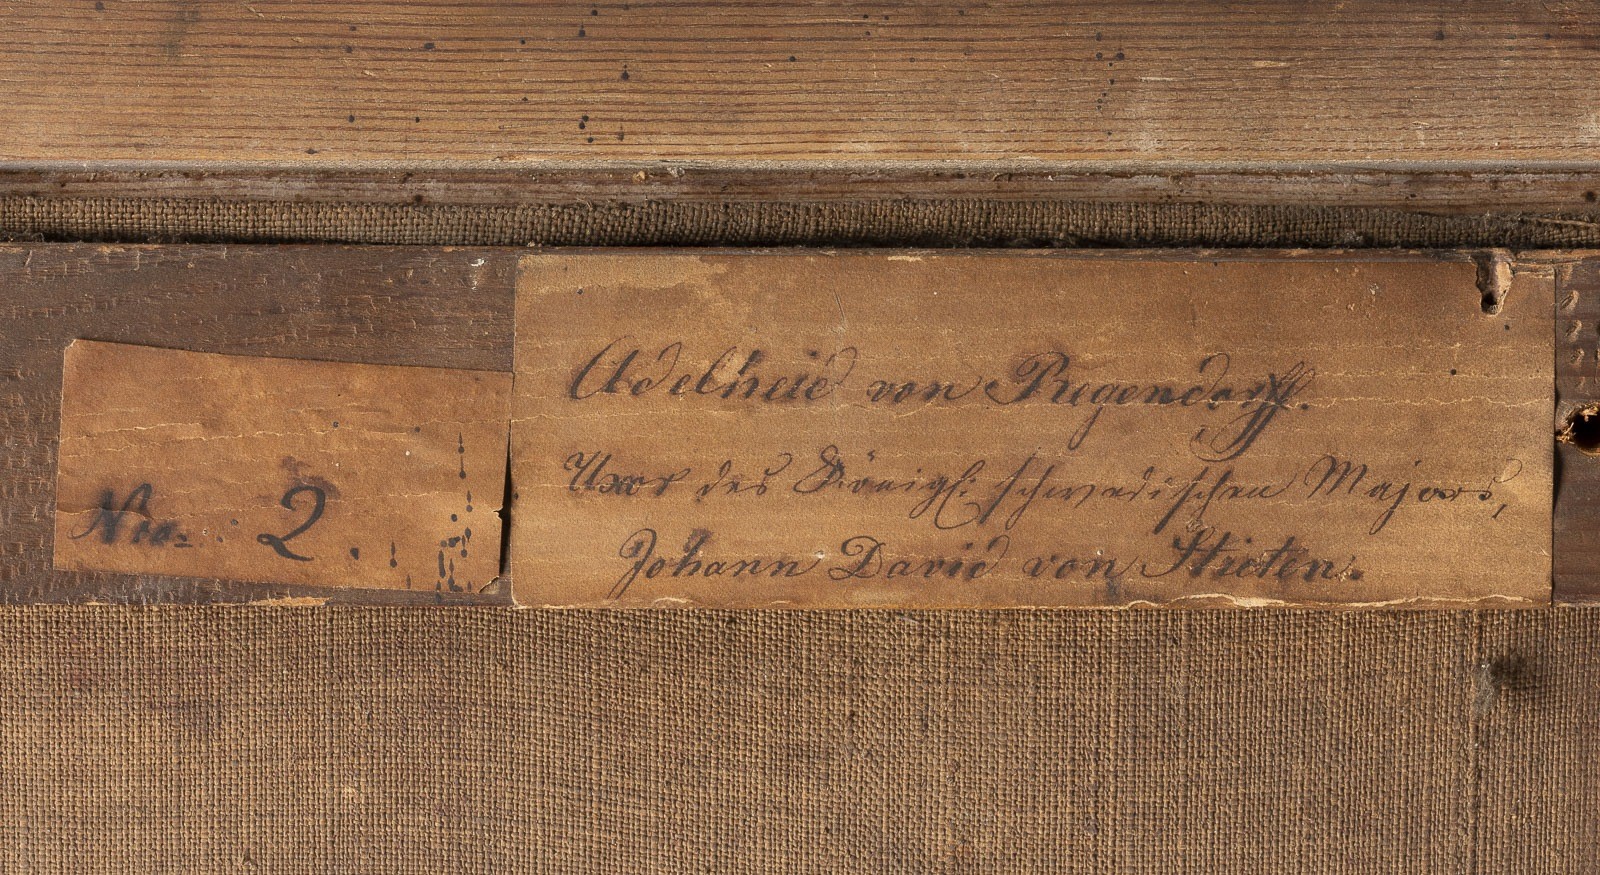 Nro. 2.
Adelheid von Regendorff.
Uxor des Königl: schwedischen Majors,
Johann David von Strieten.